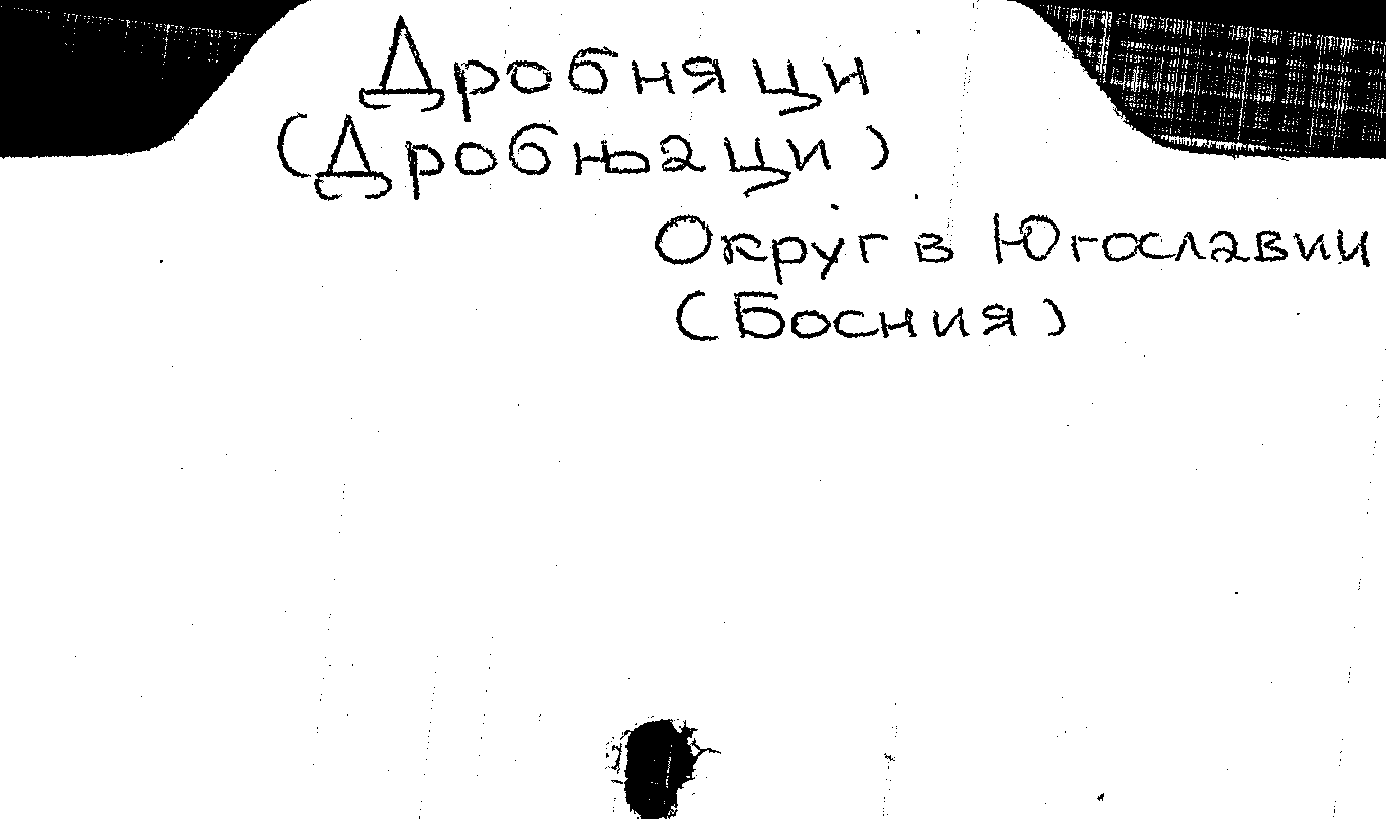 Дробняци
(Дробњаци)
Округ в Югославии
(Босния)